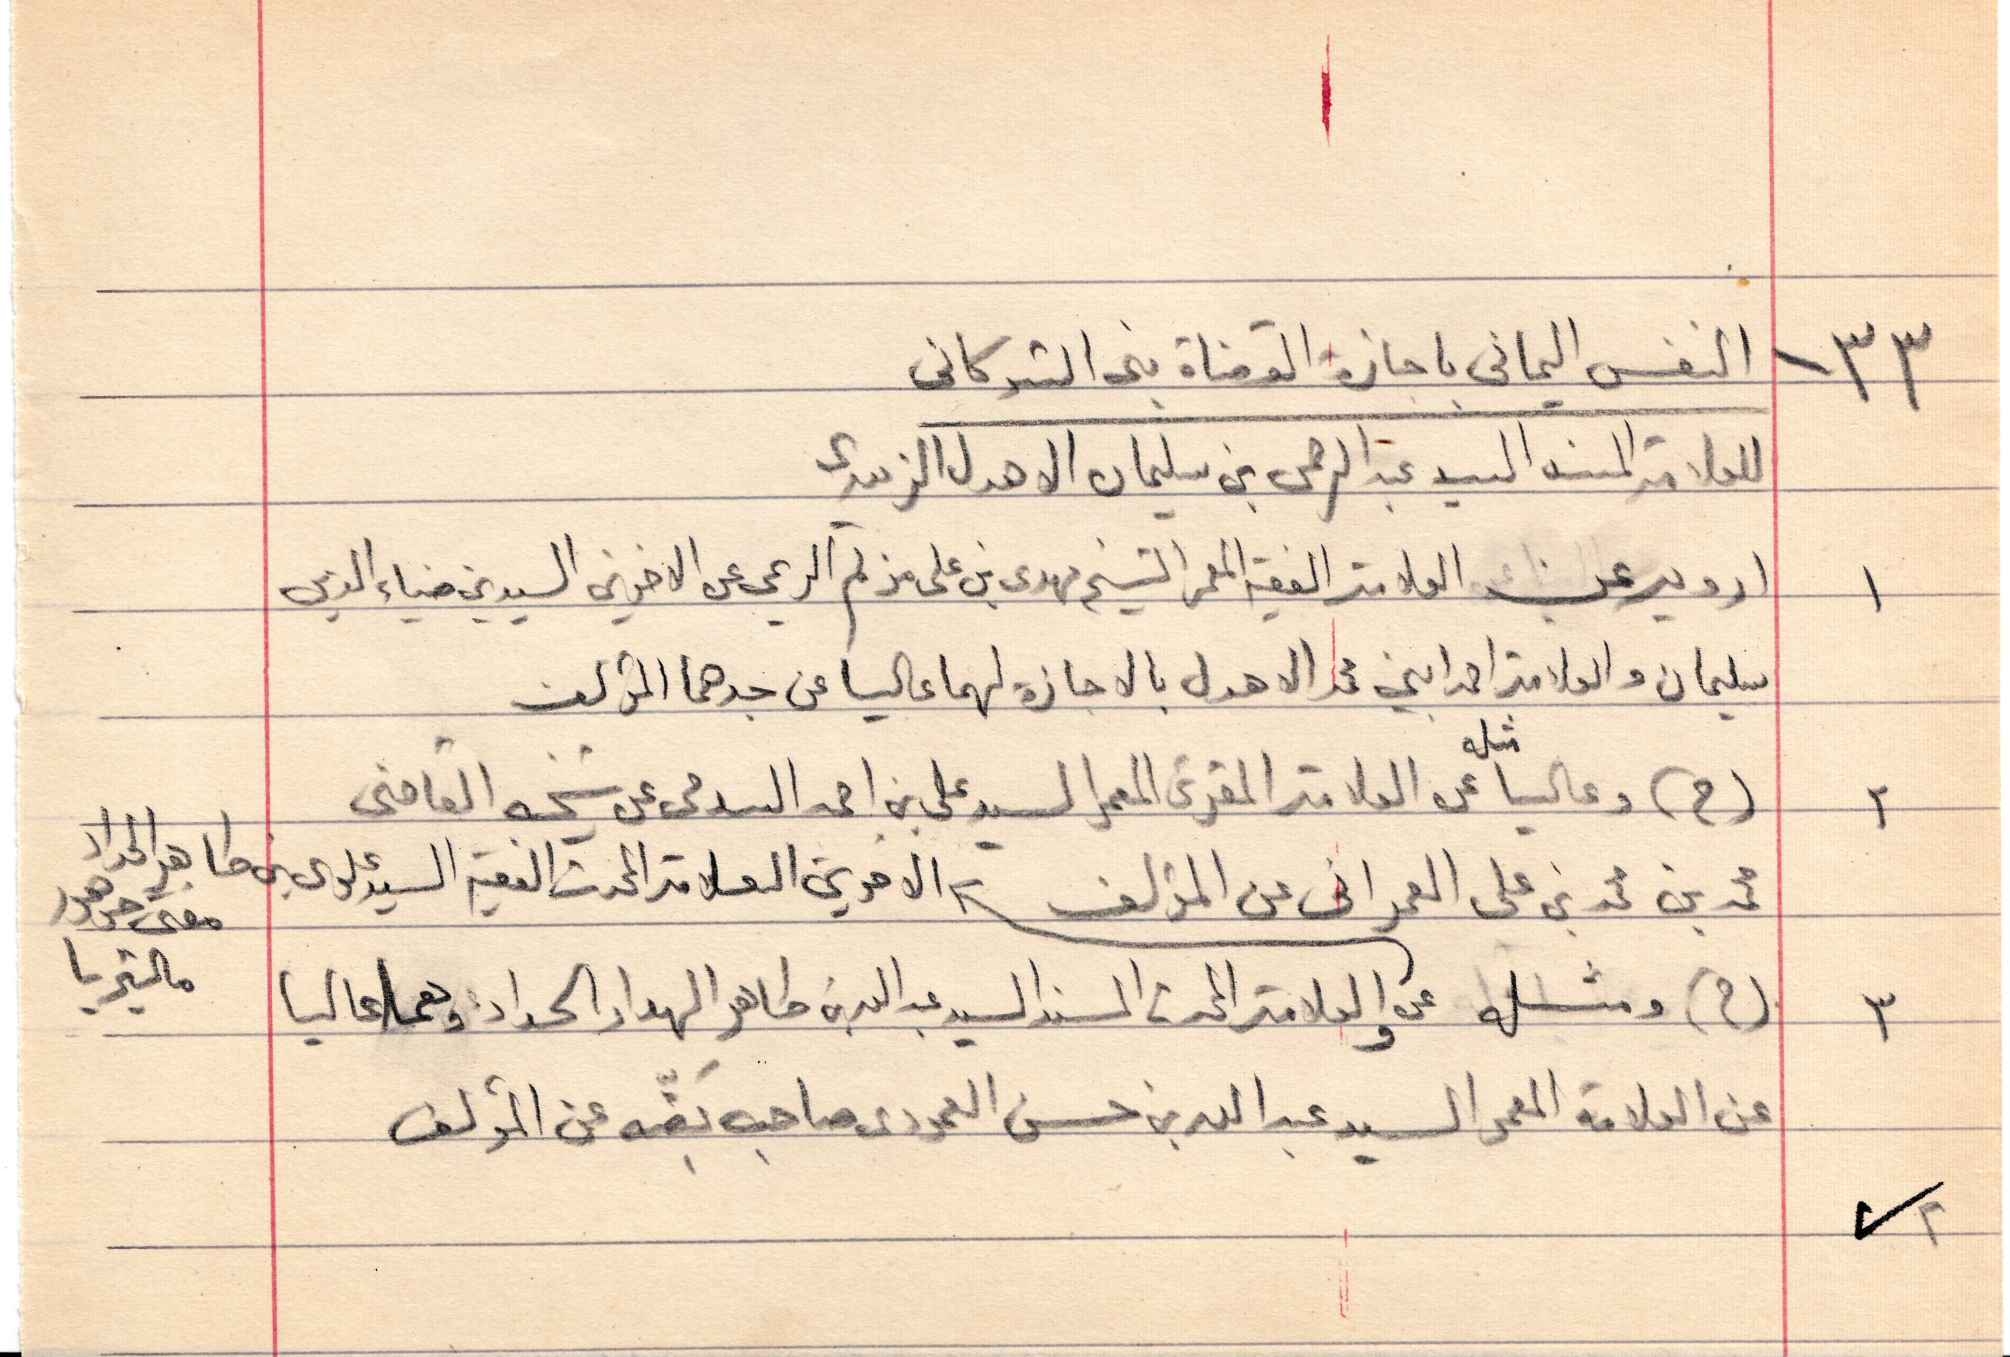 ٣٣- النفس اليماني باجازة القضاة بني الشوكاني
للعلامة المسند السيد عبد الرحمن بن سليمان الاهدل الزبيدي
١ ارويه عن العلامة الفقيه المعمر الشيخ مهدي بن علي عن الاخوين السيدين ضياء الدين
سليمان والعلامة احمد ابني محمد الاهدل بالاجازة لهما عاليا عن جدهما المؤلف
مثله
٢ (ح) وعاليا عن العلامة المقرئ المعمر السيد علي بن احمد السدمي عن شيخه القاضي
محمد بن محمد بن علي العمراني عن المؤلف
الاخوين العلامة المحدث الفقيه السيد علوي بن طاهر الحداد
مفتي جوهور
ماليزيا
٣ (ح) ومثله عن والعلامة المحدث المسند السيد عبد الله بن طاهر الهدار الحداد وهما عاليا
عن العلامة المعمر السيد عبد الله بن حسن العمودي صاحب بضه عن المؤلف
٢